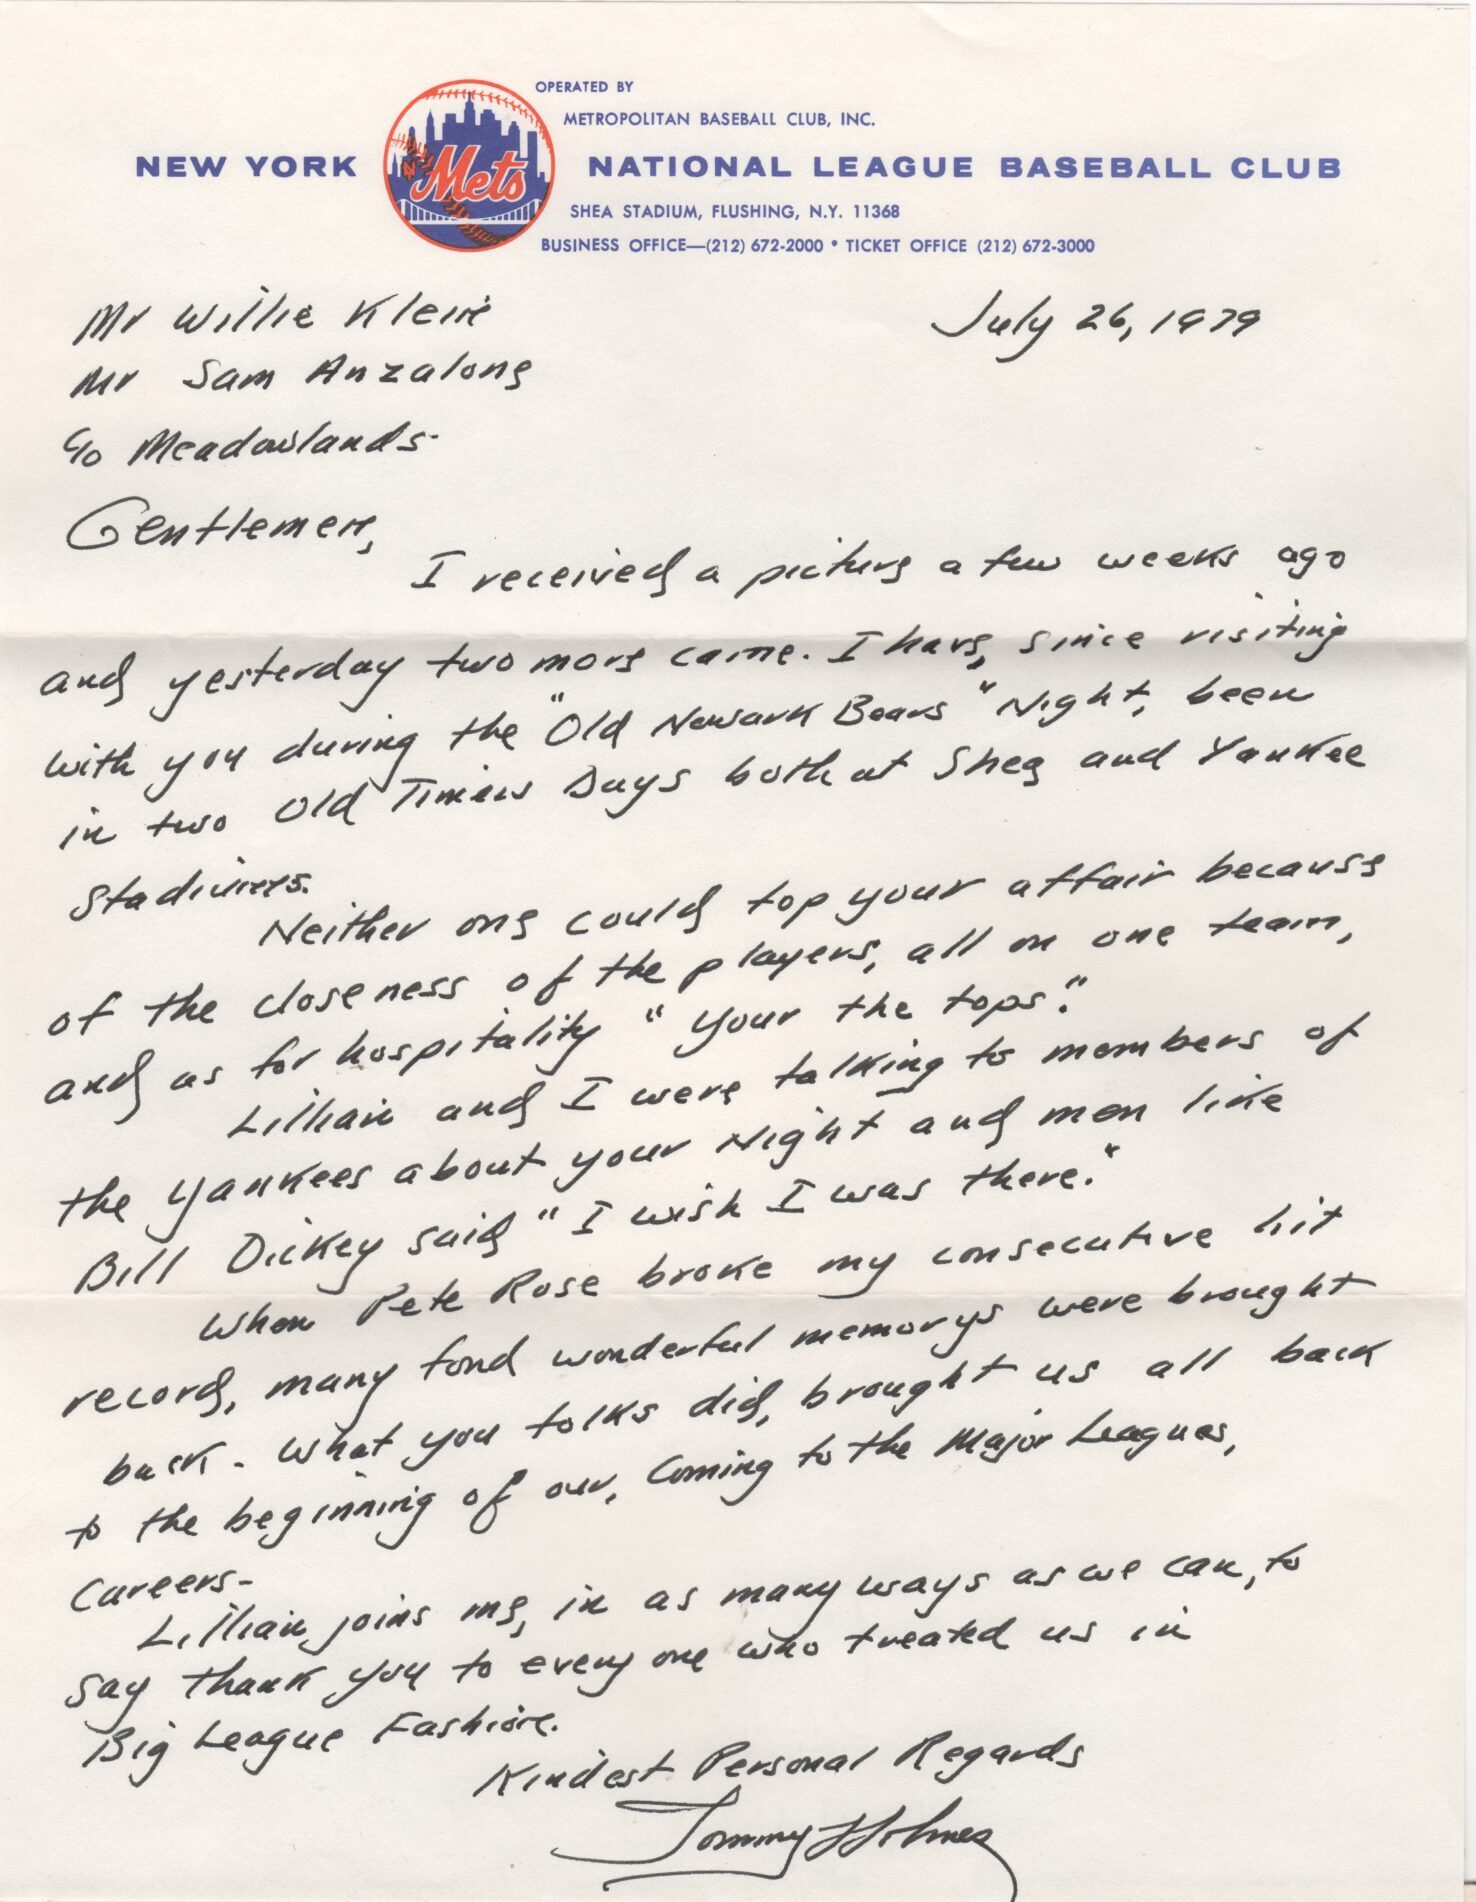 OPERATED BY
METROPOLITAN BASEBALL CLUB, INC.
NEW YORK Mets NATIONAL LEAGUE BASEBALL CLUB
NY
SHEA STADIUM, FLUSHING, N.Y. 11368
BUSINESS OFFICE—(212) 672-2000 • TICKET OFFICE (212) 672-3000
Mr Willie Klein
July 26, 1979
Mr Sam Anzalone
c/o Meadowlands.
Gentlemen,
I received a picture a few weeks ago
and yesterday two more came. I have, since visiting
with you during the "Old Newark Bears" Night, been
in two Old Timers Days both at Shea and Yankee
Stadiums.
Neither one could top your affair because
of the closeness of the players, all on one team,
and as for hospitality "your the tops".
Lillian and I were talking to members of
the Yankees about your Night and men like
Bill Dickey said "I wish I was there."
When Pete Rose broke my consecutive hit
record, many fond wonderful memorys were brought
back. What you folks did, brought us all back
to the beginning of our, Coming to the Major Leagues,
Careers-
Lillian joins me, in as many ways as we can, to
say thank you to every one who treated us in
Big League Fashion.
Kindest Personal Regards
Tommy Holmes